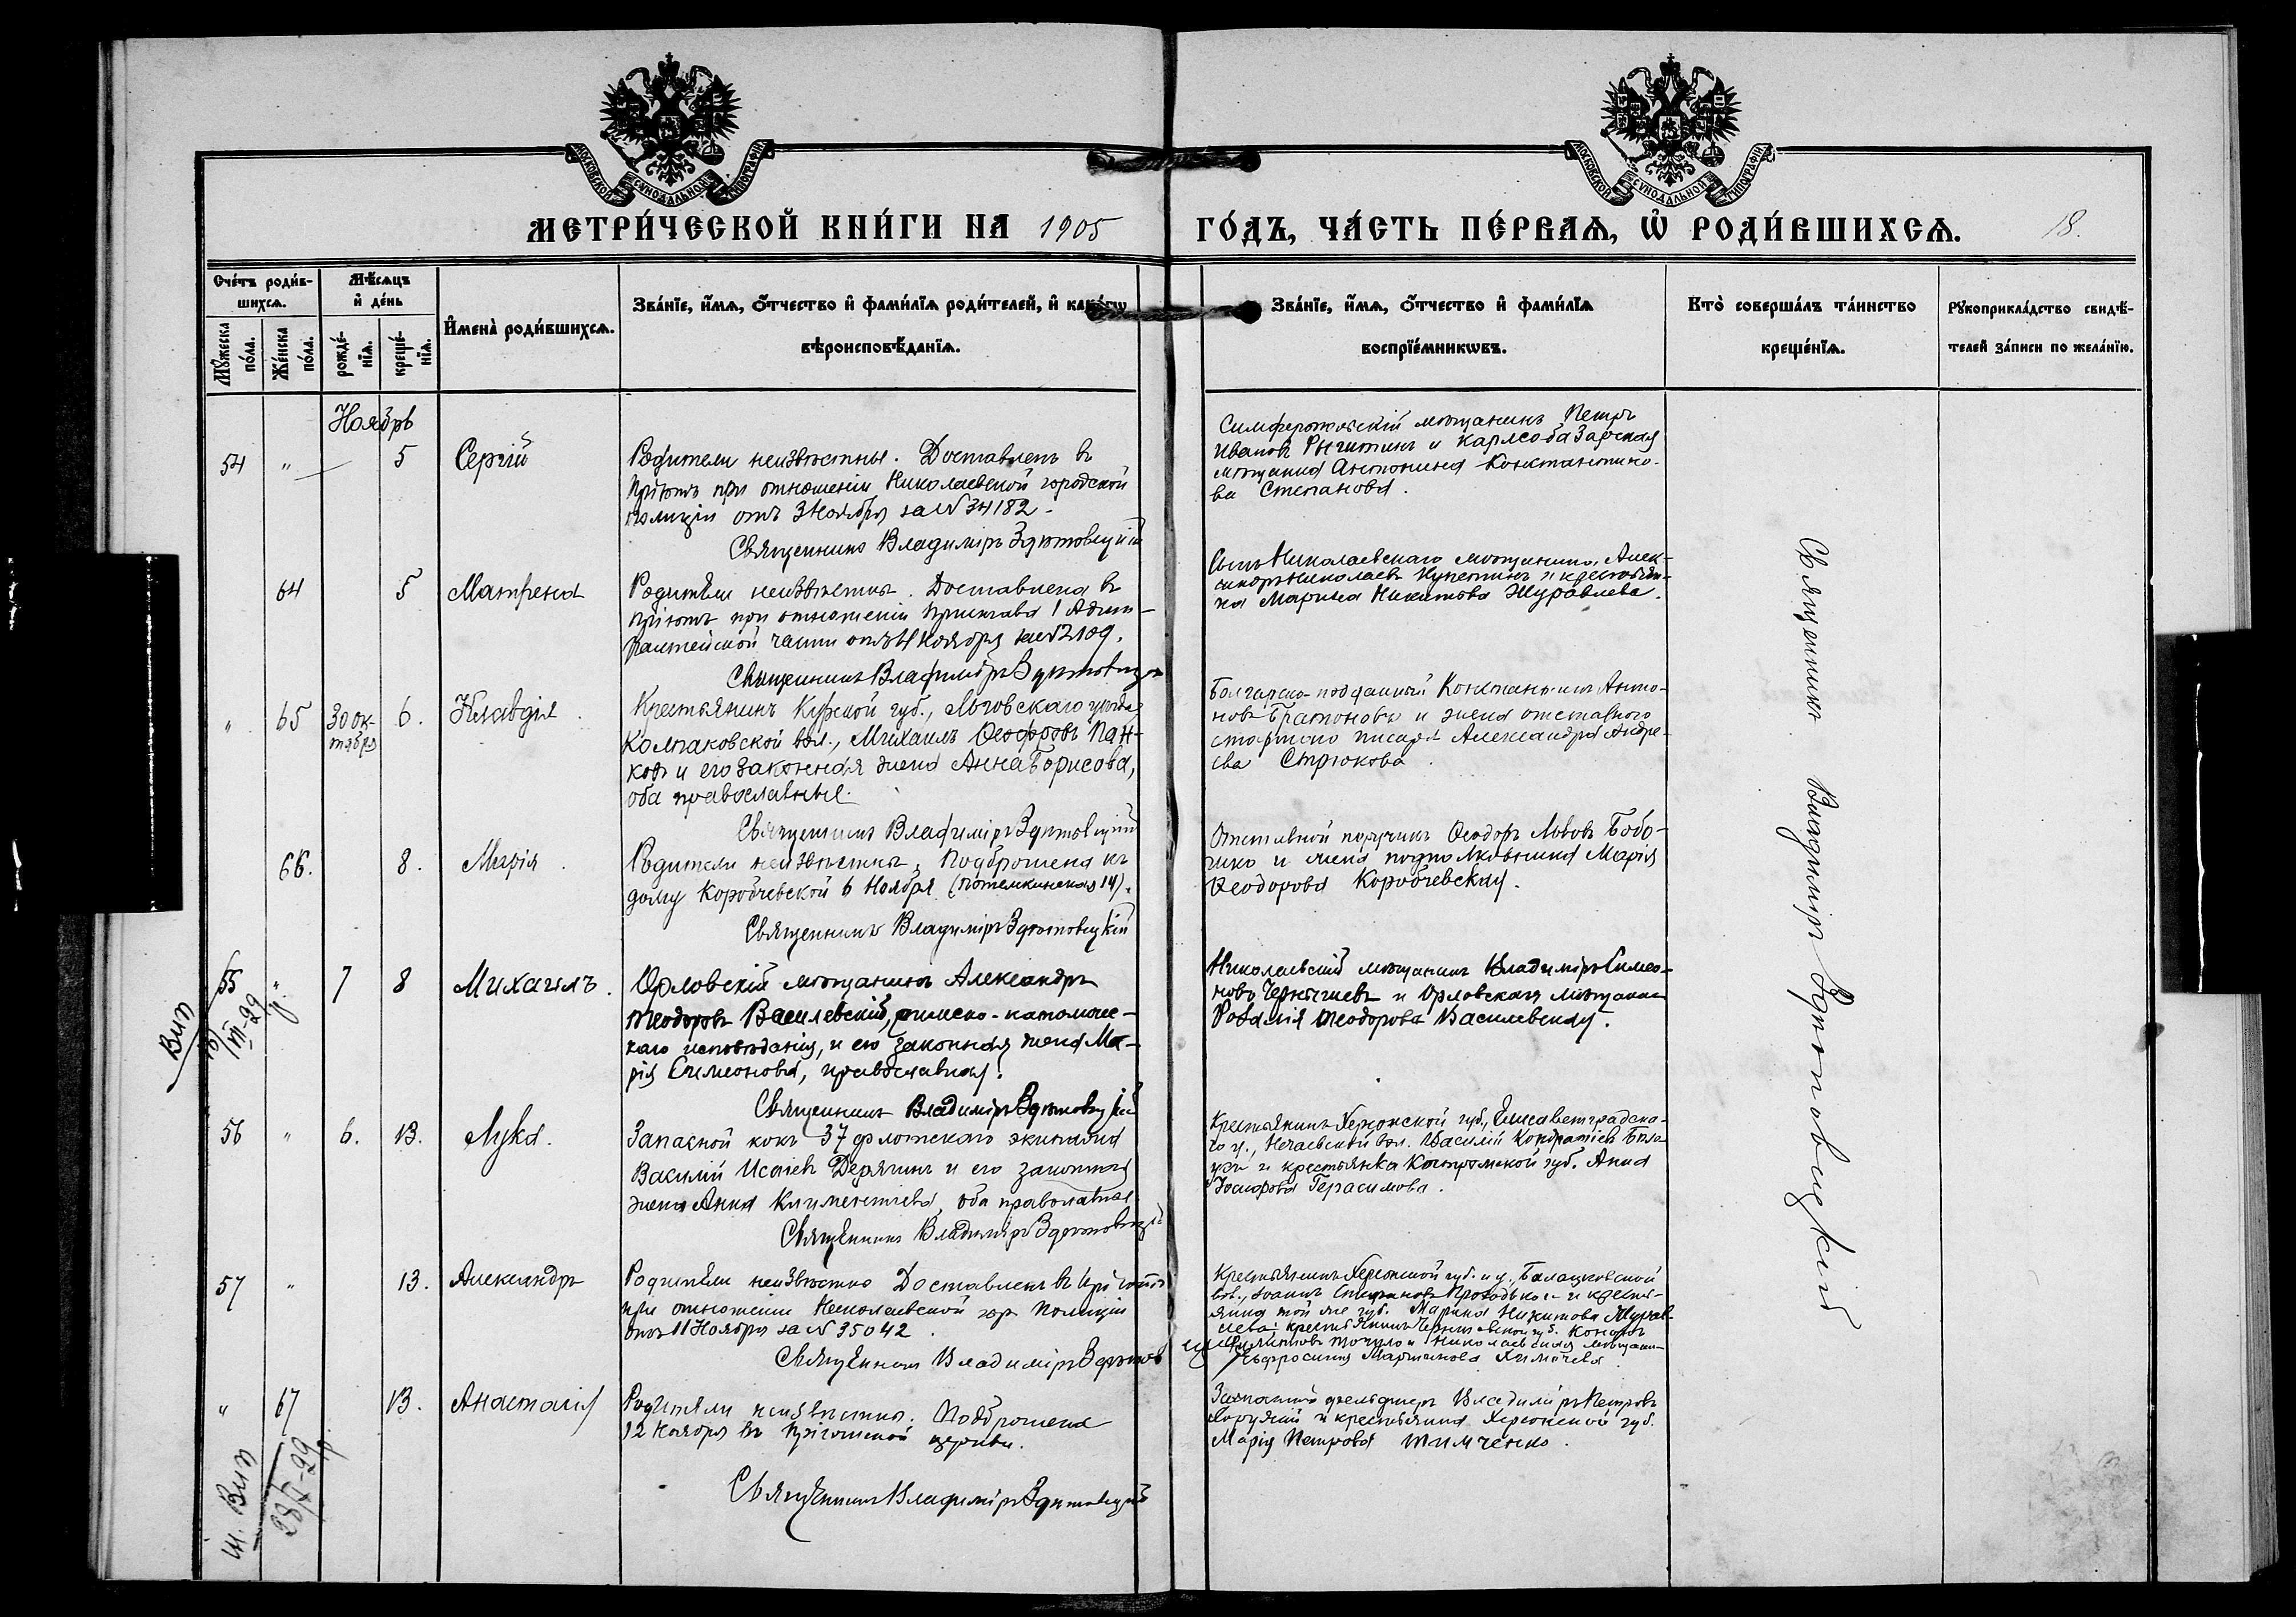 МОСКОВСКОЙ СѴНОДАЛЬНОЙ ТИПОГРАФІИ
МОСКОВСКОЙ СѴНОДАЛЬНОЙ ТИПОГРАФІИ
МЕТРИ́ЧЕСКОЙ КНИ́ГИ НА 1905 ГО́ДЪ, ЧА́СТЬ ПЕ́РВАѦ, Ѡ РОДИ́ВШИХСѦ. 18.
Сче́тъ роди́в-
шихсѧ.
Мꙋ́жеска по́ла.
Же́нска по́ла.
Мѣ́сѧцъ
и де́нь
рожде́-
нїѧ.
креще́-
нїѧ.
Имена̀ роди́вшихсѧ.
Зва́нїе, и́мѧ, о́тчество и фами́лїѧ роди́телей, и како́гѡ
вѣроисповѣ́данїѧ.
Зва́нїе, и́мѧ, о́тчество и фами́лїѧ
воспрїе́мникѡвъ.
Кто̀ соверша́лъ та́инство
креще́нїѧ.
Рꙋкоприкла́дство свидѣ́-
телей за́писи по жела́нїю.
Ноябрь
54 " — 5 Сергій
Родители неизвѣстны. Доставленъ въ
пріютъ при отношеніи Николаевской городской
полиціи отъ 3 Ноября за № 34182.
Священникъ Владиміръ
Симферопольскій мѣщанинъ Петръ
Ивановъ и Карасубазарская
мѣщанка Антонина Константино-
ва Степанова.
64 5 Матрена
Родители неизвѣстны. Доставлена въ
пріютъ при отношеніи пристава 1 Адми-
ралтейской части отъ 4 ноября за № 2109.
Священникъ Владиміръ
Сынъ Николаевскаго мѣщанина, Алек-
сандръ Николаевъ и крестьян-
ка Марина Никитова Журавлева.
" 65 30 ок-
тября 6. Клавдія.
Крестьянинъ Курской губ., Льговскаго уѣзда,
Колпаковской вол., Михаилъ Пан-
ковъ и его законная жена Анна Борисова,
оба православные.
Священникъ Владиміръ
Болгарско-подданный Константинъ Анто-
новъ и жена отставного
старшаго писаря Александра Андре-
ева Стрюкова.
66. 8. Марія.
Родители неизвѣстны. Подброшена къ
дому Коробчевской 6 Ноября (Потемкинская 14).
Священникъ Владиміръ
Отставной поручикъ Ѳеодоръ Львовъ Бобо-
и жена подполковника Марія
Ѳеодорова Коробчевская.
55 " 7 8 Михаилъ.
Вып
VII-29
Орловскій мѣщанинъ Александръ
Теодоровъ Василевскій, римско-католичес-
каго исповѣданія, и его законная жена Ма-
рія Симеонова, православная.
Священникъ Владиміръ
Николаевскій мѣщанинъ Владиміръ Симео-
новъ Чернышевъ и Орловская мѣщанка
Розалія Теодорова Василевская.
56 " 6. 13. Лука.
Запасной кокъ 37 флотскаго экипажа
Василій Исаевъ Дерягинъ и его законная
жена Анна Климентіева, оба православные
Священникъ Владиміръ
Крестьянинъ Херсонской губ., Елисаветградска-
го у., Нечаевской вол. Василій Кондратіевъ
и крестьянка Костромской губ. Анна
Герасимова.
57 " 13. Александръ
Родители неизвѣстны Доставленъ въ пріютъ
при отношеніи Николаевской гор. Полиціи
отъ 11 Ноября за № 35042.
Священникъ Владиміръ
Крестьянинъ Херсонской губ. и у., Балацковской
вол., Іоаннъ и кресть-
янка той же губ. Марина Никитова Журав-
лева: крестьянинъ Черниговской губ.
и Николаевская мѣщан-
Евфросинія Мартинова
" 67 13. Анастасія
м. Вып
28/X-29
Родители неизвѣстны. Подброшена
12 Ноября въ пріютской церкви.
Священникъ Владиміръ
Запасный фельдшеръ Владиміръ Петровъ
и крестьянка Херсонской губ.
Марія Петрова Тимченко.
Священникъ Владиміръ